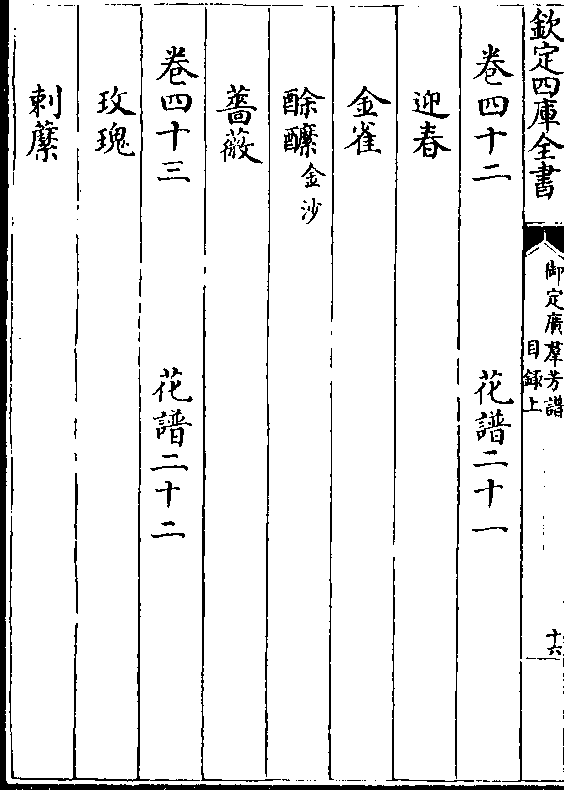 欽定四庫全書
御定廣羣芳譜
目録上
十六
卷四十二 花譜二十一
迎春
金雀
酴醿金沙
薔薇
卷四十三 花譜二十二
玫瑰
刺蘪